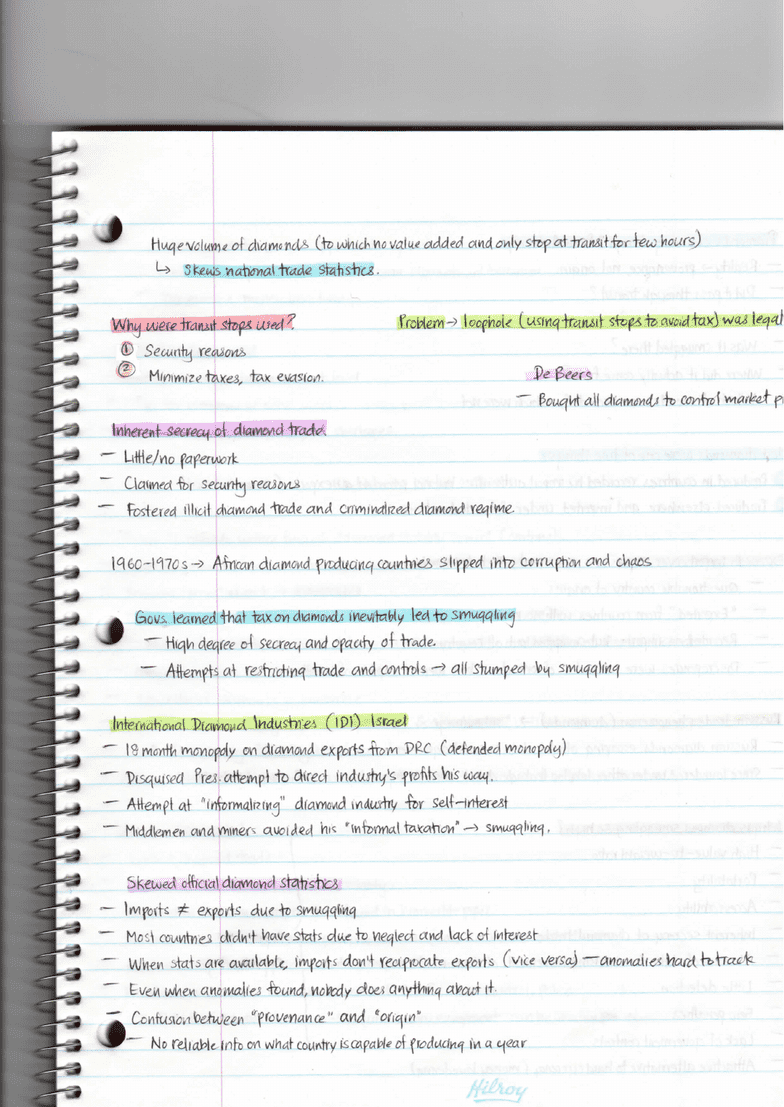 Huge volume of diamonds (to which no value added and only stop at transit for few hours)
↳ Skews national trade statistics.
Why were transit stops used?
① Security reasons
② Minimize taxes, tax evasion.
Problem → loophole (using transit stops to avoid tax) was legal
De Beers
— Bought all diamonds to control market
Inherent secrecy of diamond trade.
— Little/no paperwork
— Claimed for security reasons
— Fostered illicit diamond trade and criminalized diamond regime.
1960-1970s → African diamond producing countries slipped into corruption and chaos
Govs. learned that tax on diamonds inevitably led to smuggling
— High degree of secrecy and opacity of trade.
— Attempts at restricting trade and controls → all stumped by smuggling
International Diamond Industries (IDI) Israel
— 18 month monopoly on diamond exports from DRC (defended monopoly)
— Disguised Pres. attempt to direct industry's profits his way.
— Attempt at "informalizing" diamond industry for self-interest
— Middlemen and miners avoided his "informal taxation" → smuggling.
Skewed official diamond statistics
— Imports ≠ exports due to smuggling
— Most countries didn't have stats due to neglect and lack of interest
— When stats are available, imports don't reciprocate exports (vice versa) — anomalies hard to track
— Even when anomalies found, nobody does anything about it.
— Confusion between "provenance" and "origin"
— No reliable info on what country is capable of producing in a year
Hilroy